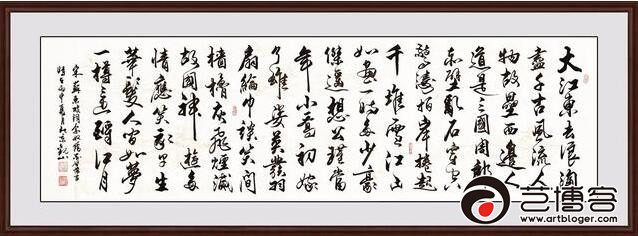 大江東去浪淘
盡千古風流人
物故壘西邊人
道是三國周郎
赤壁亂石穿空
驚濤拍岸捲起
千堆雪江山
如畫一時多少豪
傑遙想公瑾當
年小喬初嫁
了雄姿英發羽
扇綸巾談笑間
檣櫓灰飛煙滅
故國神遊多
情應笑我早生
華髮人間如夢
一樽還酹江月
宋蘇東坡詞念奴嬌赤壁懷古
時在丙申夏月
艺博客
www.artbloger.com